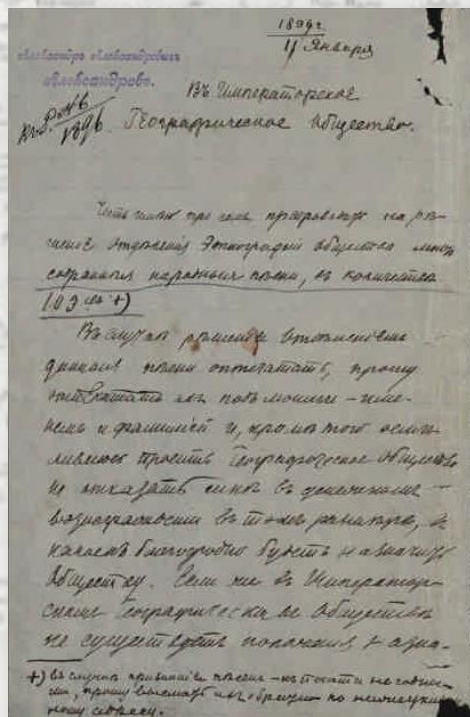 1899 г.
11 Января
Александръ Александровичъ
Александровъ.
Въ Императорское
Географическое Общество.
Честь имѣю при семъ препроводить на рѣ-
шеніе Отдѣленія Этнографіи Общества мною
собранныя народныя пѣсни, въ количествѣ
103 +)
Въ случаѣ рѣшенія
пѣсни отпечатать, прошу
отпечатать ихъ подъ моимъ име-
немъ и фамиліей и, кромѣ того осмѣ-
ливаюсь просить Географическое Общество
не отказать мнѣ въ денежномъ
вознагражденіи въ томъ размѣрѣ, въ
какомъ благоугодно будетъ назначить
Обществу. Если же въ Император-
скомъ Географическомъ Обществѣ
не существуетъ положенія о азна-
+) въ случаѣ признанія пѣсенъ къ печати не годны-
ми, прошу выслать ихъ обратно по
адресу.